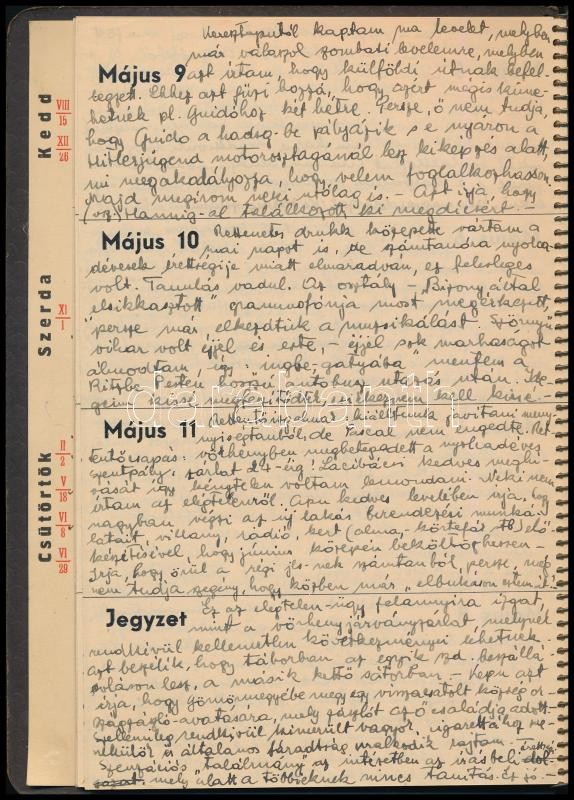 Keresztapától kaptam ma levelet, melyben
már válaszol szombati levelemre, melyben
Május 9 azt írtam, hogy külföldi útnak befel-
legzett. Ehhez azt fűzi hozzá, hogy azért mégis kime-
hetnék pl. Guidóhoz két hétre. Persze, ő nem tudja,
hogy Guido a hadseg.-be pályázik s e nyáron a
Hitlerjugend motorosztagánál lesz kiképzés alatt,
mi megakadályozza, hogy velem foglalkozhasson.
Majd megírom neki utólag is. – Azt írja, hogy
Hannig-al találkozott, ki megdicsért. –
Kedd
VIII
15
XII
26
Május 10 Rettenetes drukk közepette vártam a
mai napot is, de számtanóra nyolca-
dévesek érettségije miatt elmaradván, ez felesleges
volt. Tanulás vadul. Az osztály – „Bizony által
elsikkasztott" gramofónja most megérkezett,
persze már elkezdtük a muzsikálást. Szörnyű
vihar volt éjjel és este, – éjjel sok marhaságot
álmodtam, így: ingbe, gatyába mentem a
Ritzbe Pesten hosszú autóbusz utazás után.
Szerda
XI
1
Május 11
nyiseptanból, de Pascal nem engedte. Ret-
tentő csapás: vörhenyben megbetegedett a nyolcadéves
Szentpály: zárlat 28-éig! Lacibácsi kedves meghí-
vását így kénytelen voltam lemondani. Neki nem
írtam az elégtelenről. Apu kedves levelében írja, hogy
nagyban végzi az új lakás berendezési munká-
latait, villany, rádió, kert (alma, körtefás stb.) elő-
készítésével, hogy június közepén beköltözhessen.
Írja, hogy örül a régi jes-nek számtanból, persze, még
nem tudja szegény, hogy közben már „elbukásom esélyes"
Csütörtök
II
2
V
18
VI
8
VI
29
Jegyzet Ez az elégtelen-ügy felannyira izgat,
mint a vörhenyjárványzárlat, melynek
rendkívül kellemetlen következményei lehetnek.
Azt beszélik, hogy táborban az egyik szd. beszállá-
soláson lesz, a másik kettő sátorban. – Képu azt
írja, hogy Gömörmegyébe megy egy visszacsatolt község or-
szágzászló-avatására, mely zászlót az ő családja adott.
Szellemileg rendkívül kimerült vagyok, cigarettához me-
nekülök s általános fáradtság mutatkozik rajtam.
Szenzációs „találmány" az intézetben az írásbeli érettségi
mely alatt a többieknek nincs tanítás. Ez jó. –